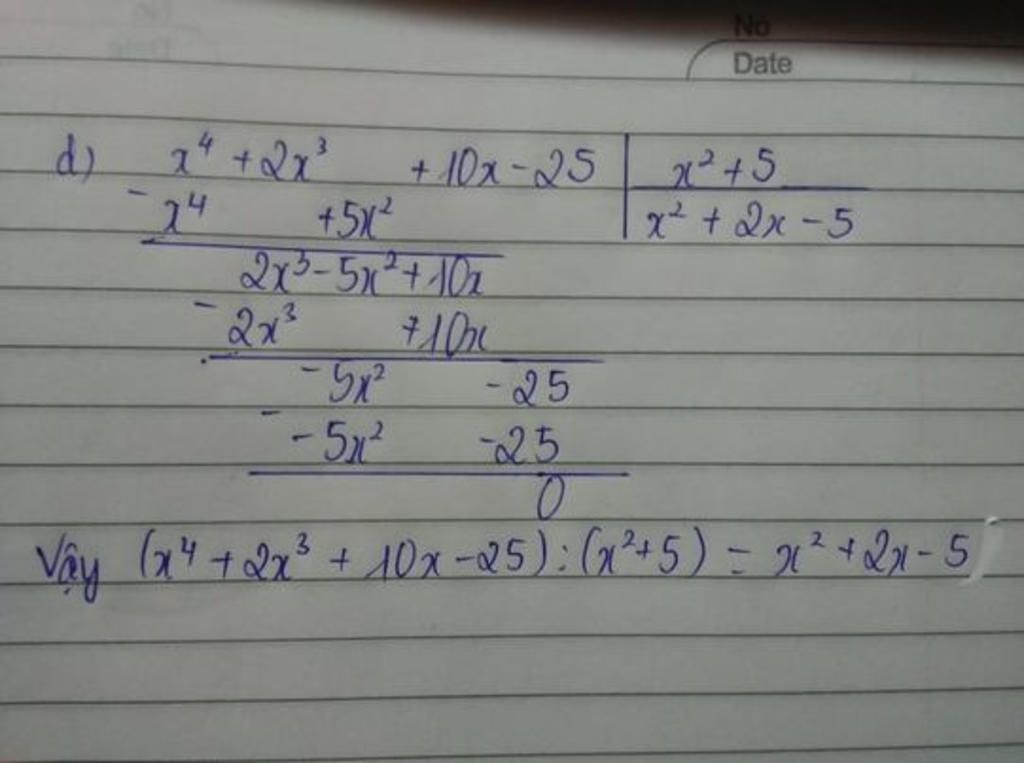 No
Date
d) x⁴ + 2x³ + 10x - 25 | x² + 5
- x⁴ + 5x² | x² + 2x - 5
2x³ - 5x² + 10x
- 2x³ + 10x
- 5x² - 25
- - 5x² - 25
0
Vậy (x⁴ + 2x³ + 10x - 25) : (x² + 5) = x² + 2x - 5